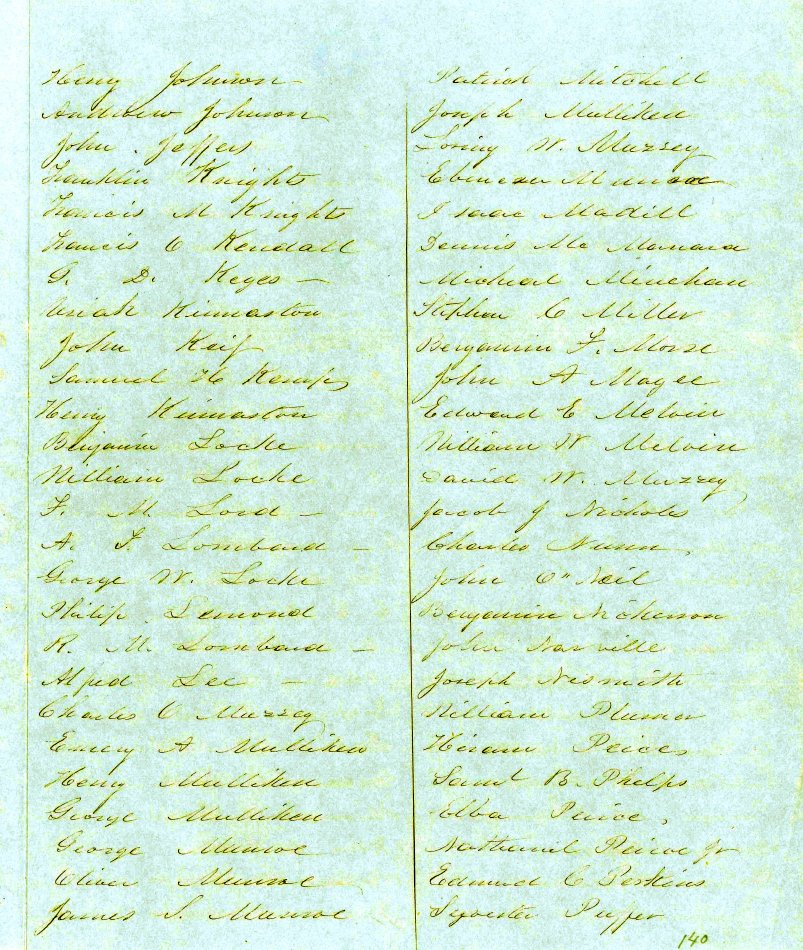 Henry Johnson
Andrew Johnson
John Jeffers
Franklin Knights
Francis M Knights
Francis C Kendall
G. D. Keyes
Uriah Kinnaston
John Keif
Samuel H Kemp
Henry Kinnaston
Benjamin Locke
William Locke
F. M. Lord
A. F. Lombard
George W. Locke
Philip Lemond
R. M. Lombard
Alfred Lee
Charles C Muzzey
Emery A Mulliken
Henry Mulliken
George Mulliken
George Munroe
Oliver Munroe
James S. Munroe
Patrick Mitchell
Joseph Mulliken
Loring W. Muzzey
Ebenezer Munroe
Isaac Madill
Dennis Mc Mamara
Michael Minehan
Stephen C Miller
Benjamin F. Morse
John A Magee
Edward E Melvin
William W Melvin
David W. Muzzey
Jacob J Nichols
Charles Nunn.
John O" Neil
Benjamin Nickerson
John Narville
Joseph Nesmith
William Plumer
Hiram Peirce
Saml B. Phelps
Elba Peirce,
Nathaniel Peirce Jr
Edmund C Perkins
Sylvester Puffer
140